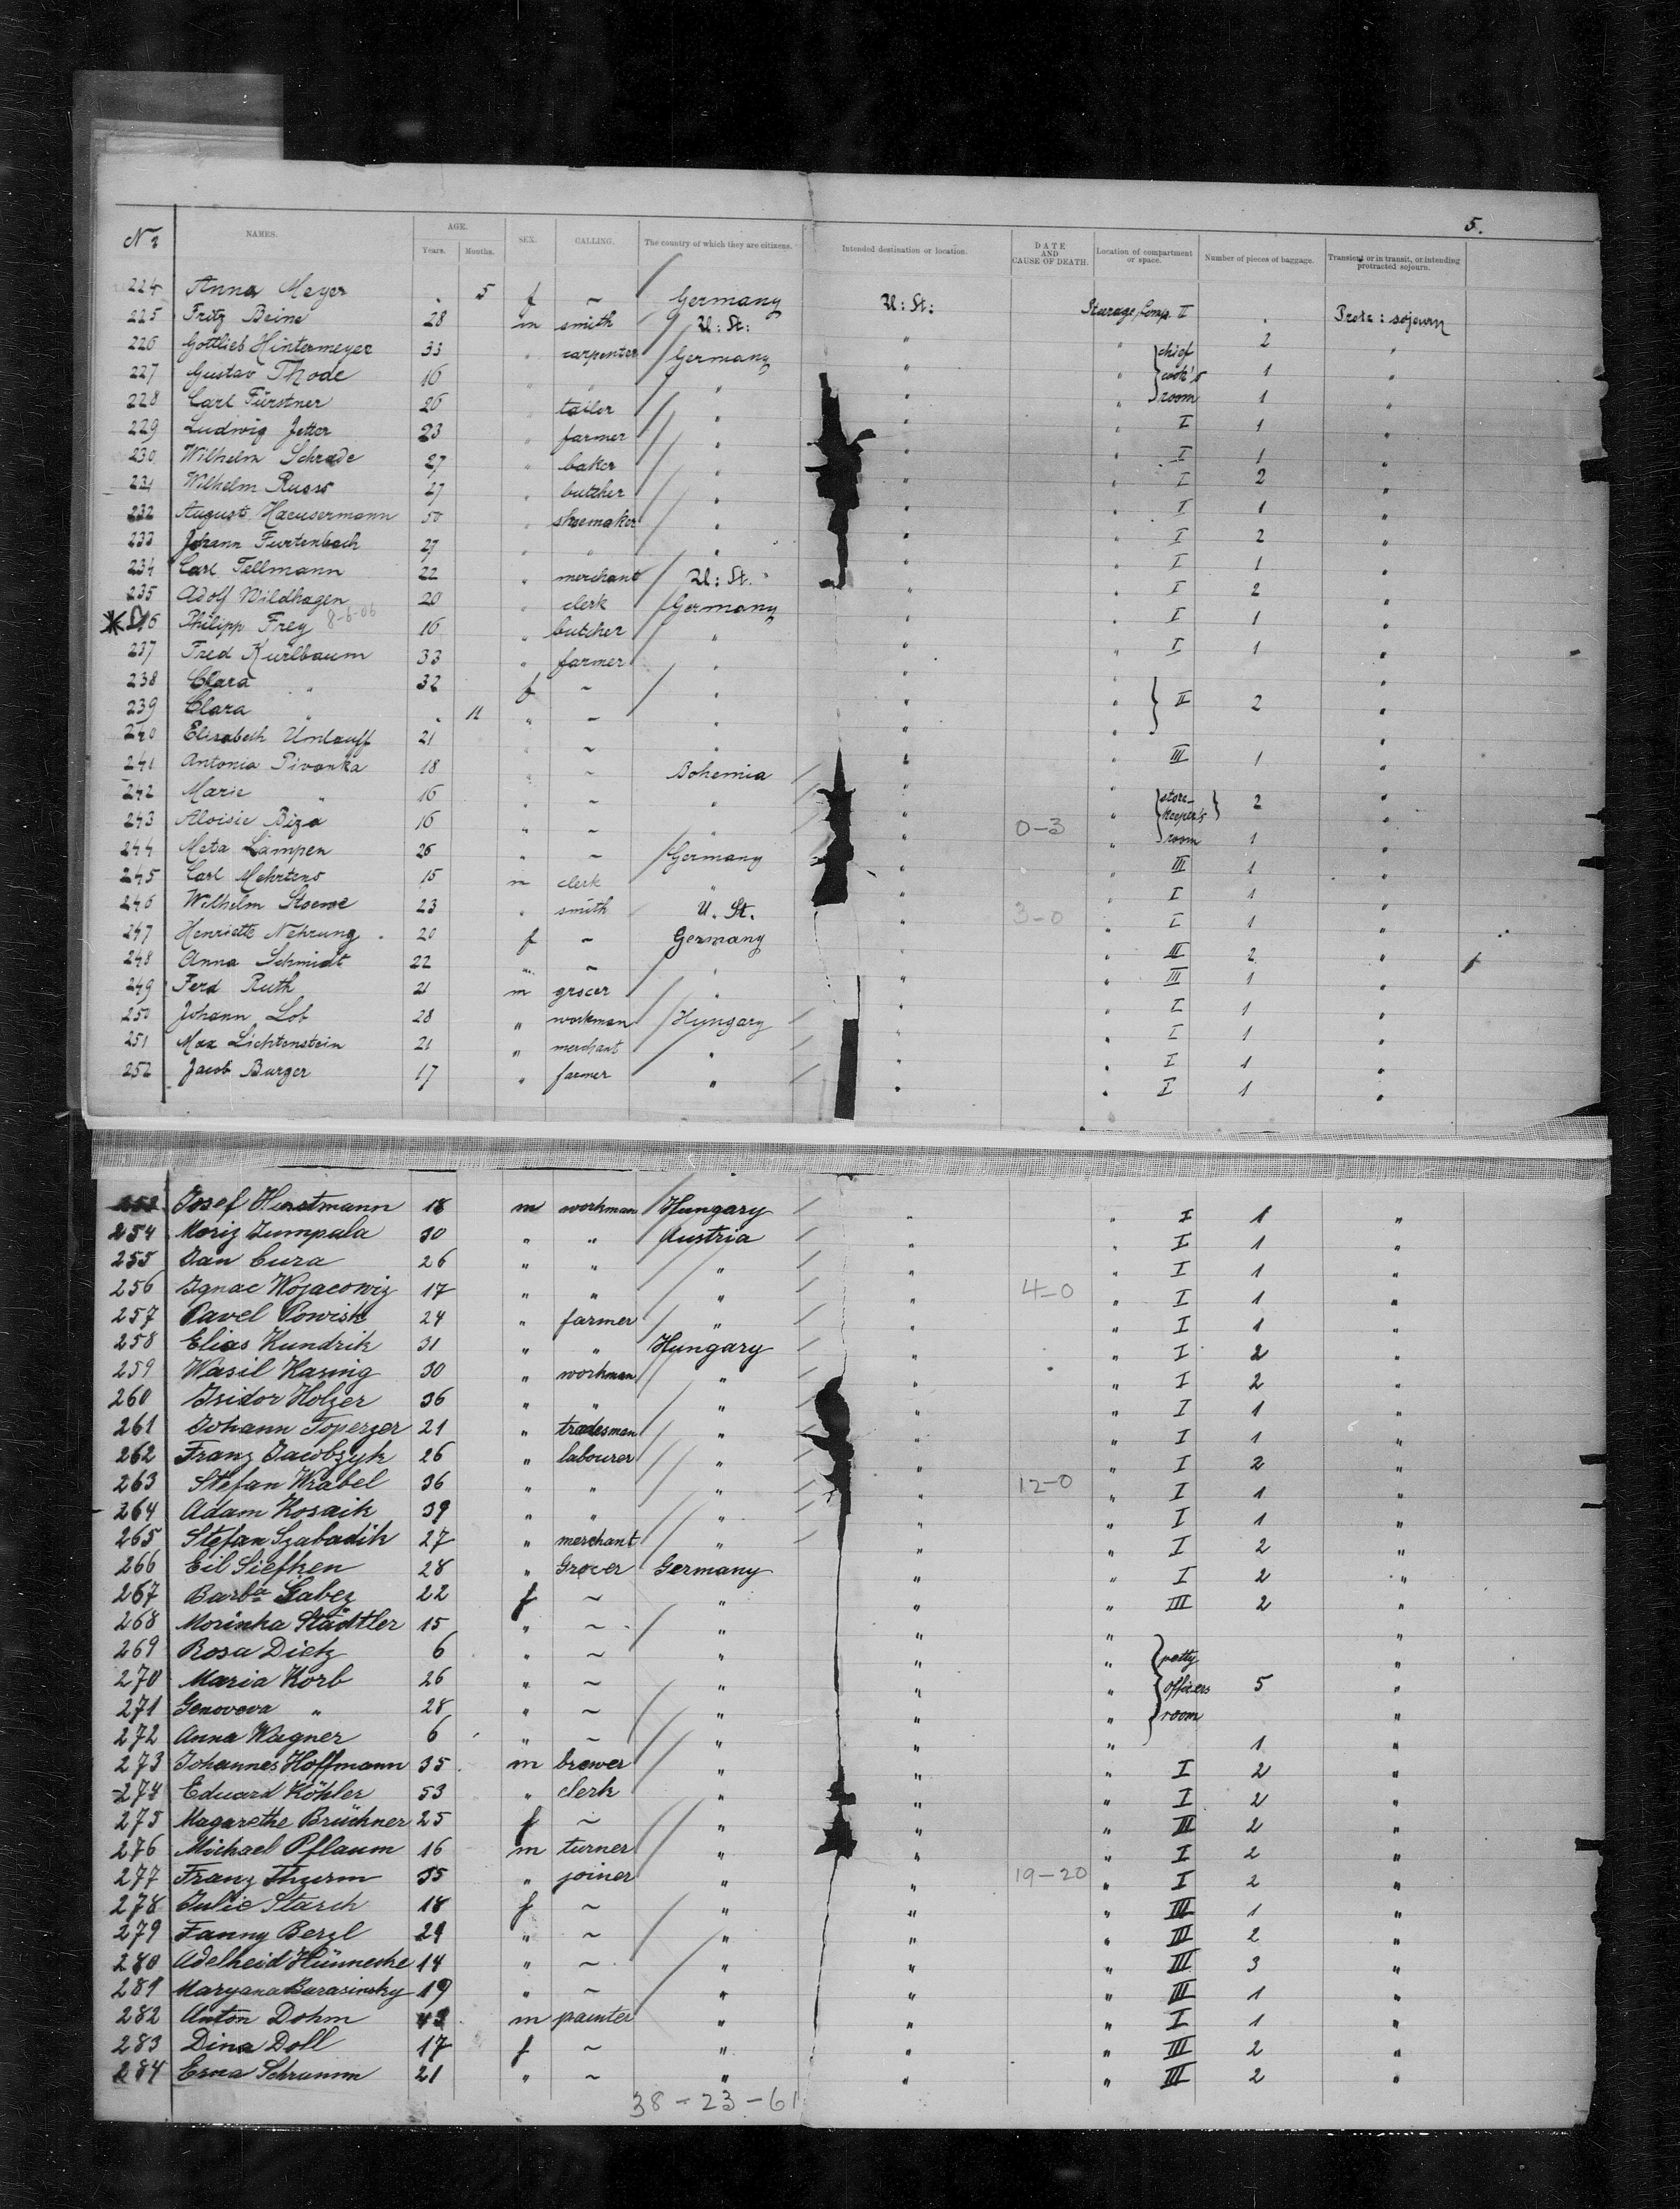 5.
Nr NAMES. AGE. Years. Months. SEX. CALLING. The country of which they are citizens. Intended destination or location. DATE AND CAUSE OF DEATH. Location of compartment or space. Number of pieces of baggage. Transient or in transit, or intending protracted sojourn.
224 Anna Meyer . 5 f ~ Germany U: St: Steerage Comp. II . Protr: sojourn
225 Fritz Beine 28 m smith U: St: " " 2 "
226 Gottlieb Hintermeyer 33 " carpenter Germany " " chief 1 "
227 Gustav Thode 16 " " " " " cook's 1 "
228 Carl Fürstner 26 " tailor " " " room I 1 "
229 Ludwig Jetter 23 " farmer " " " I 1 "
230 Wilhelm Schrade 27 " baker " " " I 2 "
231 Wilhelm Ruess 27 " butcher " " " I 1 "
232 August Haeusermann 50 " shoemaker " " " I 2 "
233 Johann Furtenbach 27 " " " " " I 1 "
234 Carl Tellmann 22 " merchant U: St. " " I 2 "
235 Adolf Wildhagen 20 " clerk Germany " " I 1 "
Philipp Frey 8-6-06 16 " butcher " " " I 1 "
237 Fred Kurlbaum 33 " farmer " " "
238 Clara " 32 f ~ " " " II 2 "
239 Clara " . 11 " ~ " " " "
240 Elisabeth Umlauff 21 " ~ " " " III 1 "
241 Antonia Pivonka 18 " ~ Bohemia " " store- 2 "
242 Marie " 16 " ~ " " " keeper's "
243 Aloisie Biza 16 " ~ " " 0-3 " room 1 "
244 Meta Lampen 26 " ~ Germany " " III 1 "
245 Carl Mehrtens 15 m clerk " " " I 1 "
246 Wilhelm Stoewe 23 " smith U. St. " 3-0 " I 1 "
247 Henriette Nehrung 20 f ~ Germany " " III 2 "
248 Anna Schmidt 22 " ~ " " " III 1 "
249 Ferd Ruth 21 m grocer " " " I 1 "
250 Johann Lob 28 " workman Hungary " " I 1 "
251 Max Lichtenstein 21 " merchant " " " I 1 "
252 Jacob Burger 17 " farmer " " " I 1 "
253 Josef Horstmann 18 m workman Hungary " " I 1 "
254 Moriz Zumpala 30 " " Austria " " I 1 "
255 Jan Cura 26 " " " " " I 1 "
256 Ignac Wojacowiz 17 " " " " 4-0 " I 1 "
257 Pavel Powish 24 " farmer " " " I 1 "
258 Elias Kundrik 31 " " Hungary " " I 2 "
259 Wasil Hasing 30 " workman " " " I 2 "
260 Isidor Holzer 36 " " " " " I 1 "
261 Johann Toperzer 21 " tradesman " " " I 1 "
262 Franz Jacobzyk 26 " labourer " " " I 2 "
263 Stefan Wrabel 36 " " " " 12-0 " I 1 "
264 Adam Kosaik 39 " " " " " I 1 "
265 Stefan Szabadik 27 " merchant " " " I 2 "
266 Eil Siefken 28 " Grocer Germany " " I 2 "
267 Barba Gabez 22 f ~ " " " III 2 "
268 Morinka Städtler 15 " ~ " " " "
269 Rosa Dietz 6 " ~ " " " petty "
270 Maria Korb 26 " ~ " " " officers 5 "
271 Genoveva " 28 " ~ " " " room "
272 Anna Wagner 6 " ~ " " " 1 "
273 Johannes Hoffmann 35 m brewer " " " I 2 "
274 Eduard Köhler 53 " clerk " " " I 2 "
275 Magarethe Brückner 25 f ~ " " " III 2 "
276 Michael Pflaum 16 m turner " " " I 2 "
277 Franz Thurm 35 " joiner " " 19-20 " I 2 "
278 Julie Starch 18 f ~ " " " III 1 "
279 Fanny Berzl 24 " ~ " " " III 2 "
280 Adelheid Hünneske 14 " ~ " " " III 3 "
281 Maryana Barasinsky 19 " ~ " " " III 1 "
282 Anton Dohm m painter " " " I 1 "
283 Dina Doll 17 f ~ " " " III 2 "
284 Erna Schramm 21 " ~ " " " III 2 "
38-23-61